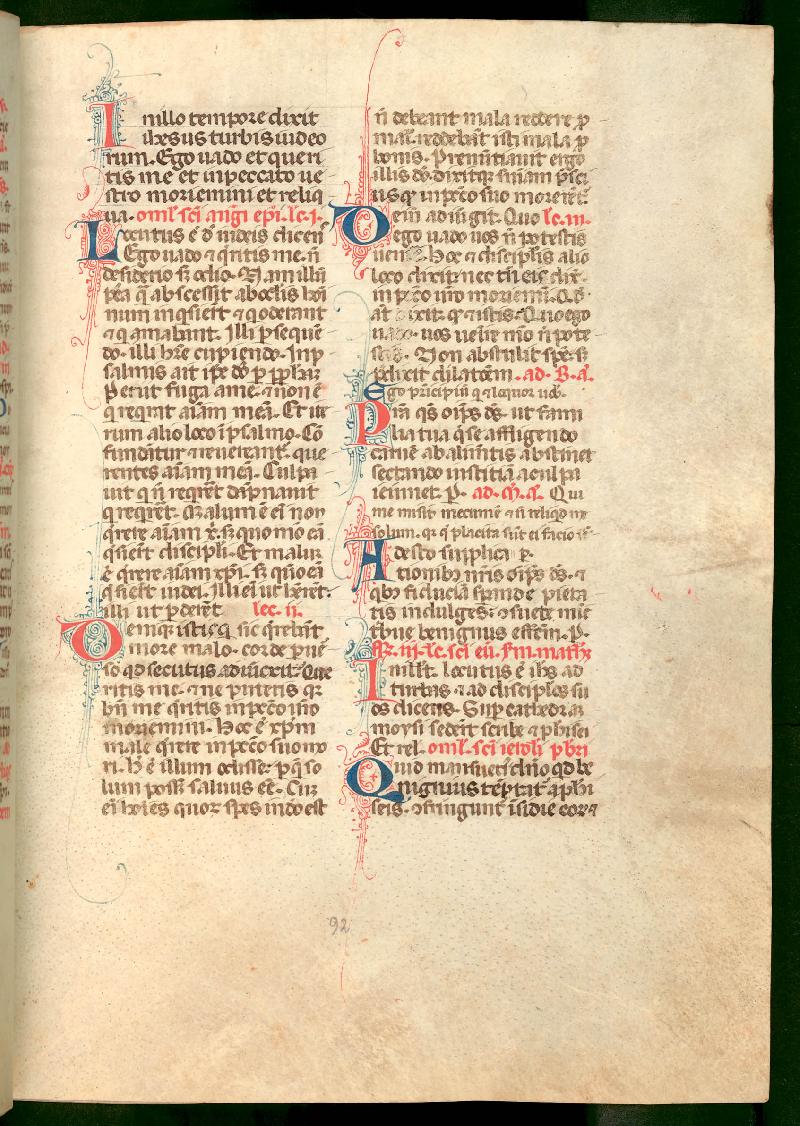 In illo tempore dixit
ihesus turbis iudeo
rum. Ego uado et queri
tis me et in peccato ue
stro moriemini et reliq
ua. oml. sci augi epi. lc. i.
Locutus ē d iudeis dicens
Ego uado ⁊ qritis me. n̄
desiderio s; odio. Nam illū
postea q̄ abscessit ab oclis hoi
num inqsieŕt ⁊ q oderant
⁊ q amabant. Illi psequē
do. illi hr̄e cupiendo. In p
salmis ait ipe dō p pphaz
Periit fuga a me. ⁊ non ē
q requirat aīam meā. Et ite
rum alio loco ī psalmo. Cō
fundātur ⁊ reuereant̄. que
rentes aīam meā. Culpa
uit q n̄ reqreŕt dāpnauit
q reqreŕt. Malum ē eī non
qrere aīam x̄. s; quo mō eā
qsieŕt discipli. Et malū
ē qrere aīam xp̄i. s; quō eā
qsieŕt iudei. Illi eī ut hēreŕt.
illi ut pdereŕt lec. ii.
Deniq isti q sic qrebāt
more malo. corde puer
so qd secutus adiūxit. Que
ritis me. ⁊ ne putetis q
bn̄ me qritis in pctō uro
moriemini. Hoc ē xp̄m
male qrere in pctō suo mo
ri. H ē illum odisse. p q̄ so
lum possꝫ saluus eē. Cū
ei hoies quoꝛ spes in dō est
n̄ debeant mala reddere p
mal. reddebāt isti mala p
bonis. Prenūtiauit ergo
illis dō. dixitq sniam psci
us q in pctō suo morereŕt.
Dein adiūgit. Quo lc. iii.
ego uado uos n̄ potestis
uenī. Hoc ⁊ discipulis alio
loco dixit. nec tn̄ eis dix.
in pctō uro moriemī. Qd
aŭt dixit. q ⁊ istis. Quo ego
uado. uos uenire mō n̄ pote
stis. Non abstulit spē. s;
pdixit dilatōem. ad. B. a.
Ego principiū q ⁊ loquor uob.
Pm̄ qs oīps ds. ut fami
lia tua q se affligendo
carnē ab alimtis abstinet
sectando iustitiā a culpa
ieiunet. P. ad. m̄. a. Qui
me misit mecum ē ⁊ n̄ reliqd me
solum. qr q placita sūt ei facio sē
Adesto supplica p.
Ationib; nris oīps ds. ⁊
qb; fiduciā sperāde pieta
tis indulges. ⁊suete mie
tbue benignus effem. P.
fr. iii. lc. sci eu. sm. math
In illt. Locutus ē ihs ad
turbas ⁊ ad disciplos su
os dicens. Sup cathedraz
moysi sedeŕt scribe ⁊ phisei
Et rel. oml. sci ieroli pbri
Quid mansueti dnō qd be
nignius tēptat̄ a phi
seis. ⁊fringunt̄ īsidie eorꝫ
92